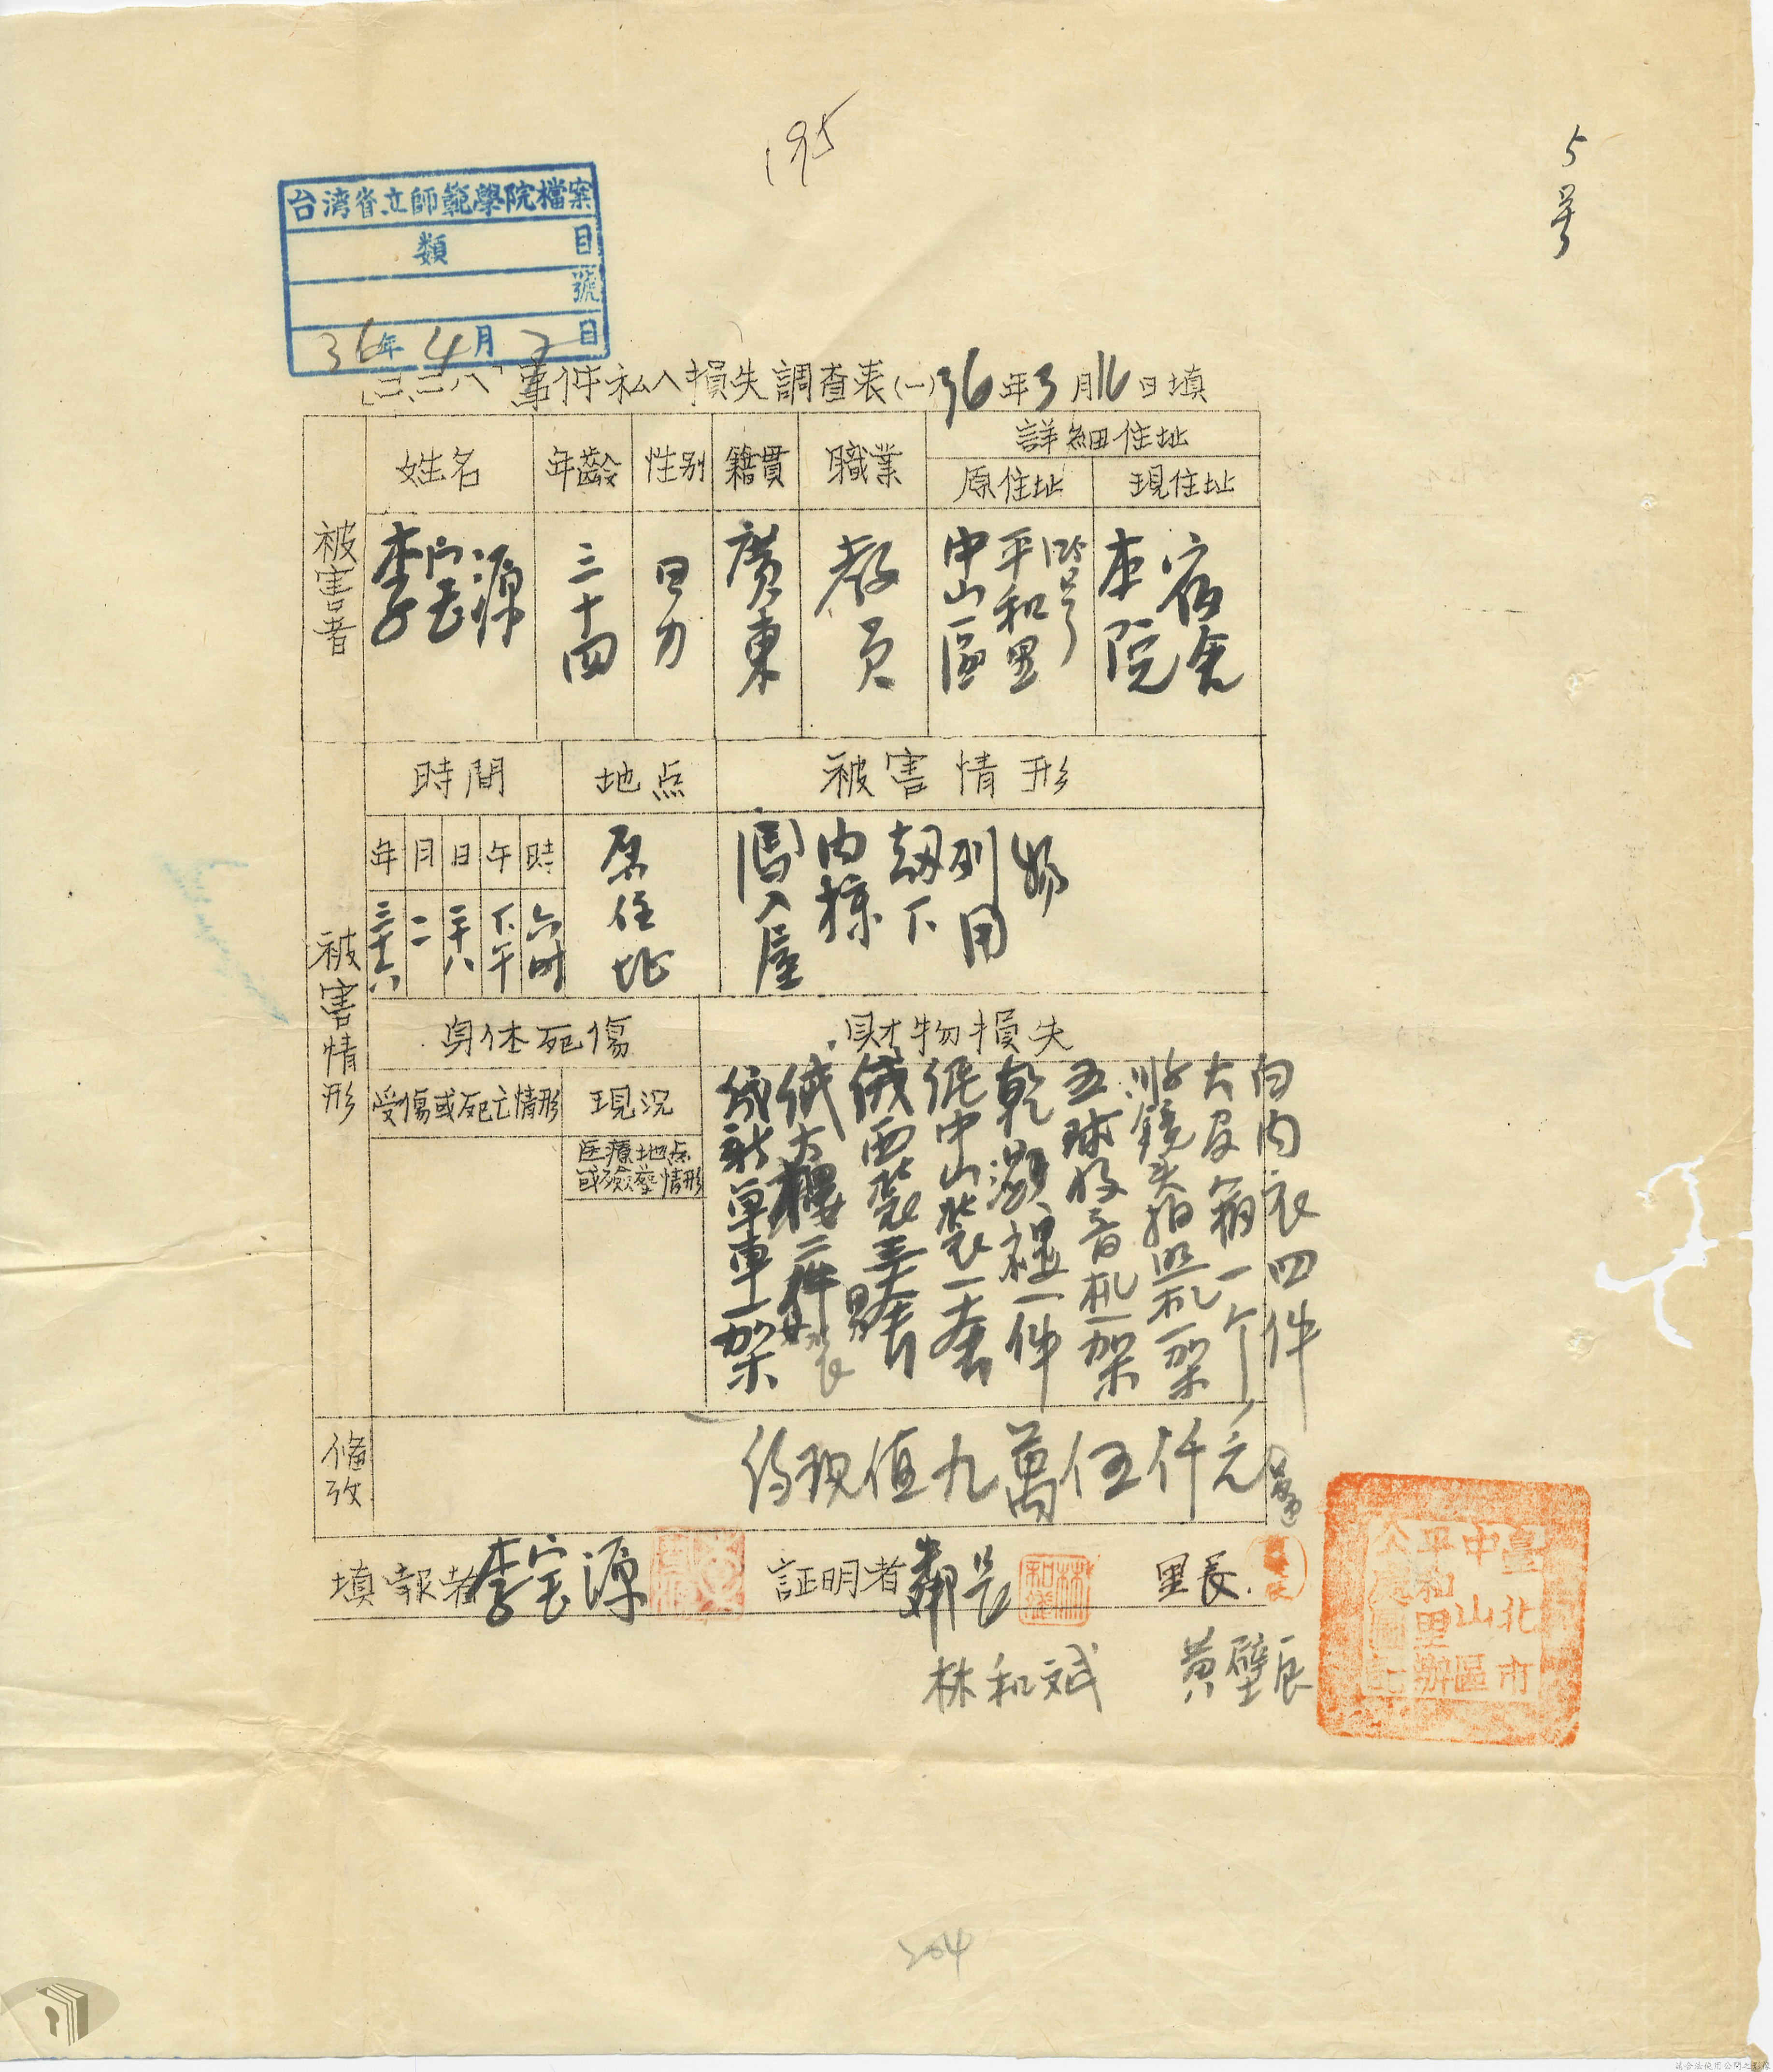 195
5号
台湾省立師範學院檔案
類 目
號
36年4月2日
「二、二八」事件私人損失調查表(一) 36年3月16日填
被害者
姓名
年齡
性別
籍貫
職業
詳細住址
原住址
現住址
李宝源
三十四
男
廣東
教員
中山區
平和里
本院
宿舍
被害情形
時間
地点
被害情形
年
月
日
午
時
三十六
二
二十八
下午
六时
原住址
闖入屋
内掠
劫下
列用
物
身体死傷
財物損失
受傷或死亡情形
現況
医療地点
或殮塟情形
絨大樓二件
絨西裝三套
中山裝一套
乾濕褸一件
五球收音机一架
鏡头拍照机一架
大皮箱一个
白内衣四件
備攷
約現值九萬伍仟元
填報者 李宝源
証明者 鄰長
林和斌
里長
黃壁辰
臺北市
中山區
平和里辦
公處圖記
204
請合法使用公開之影像